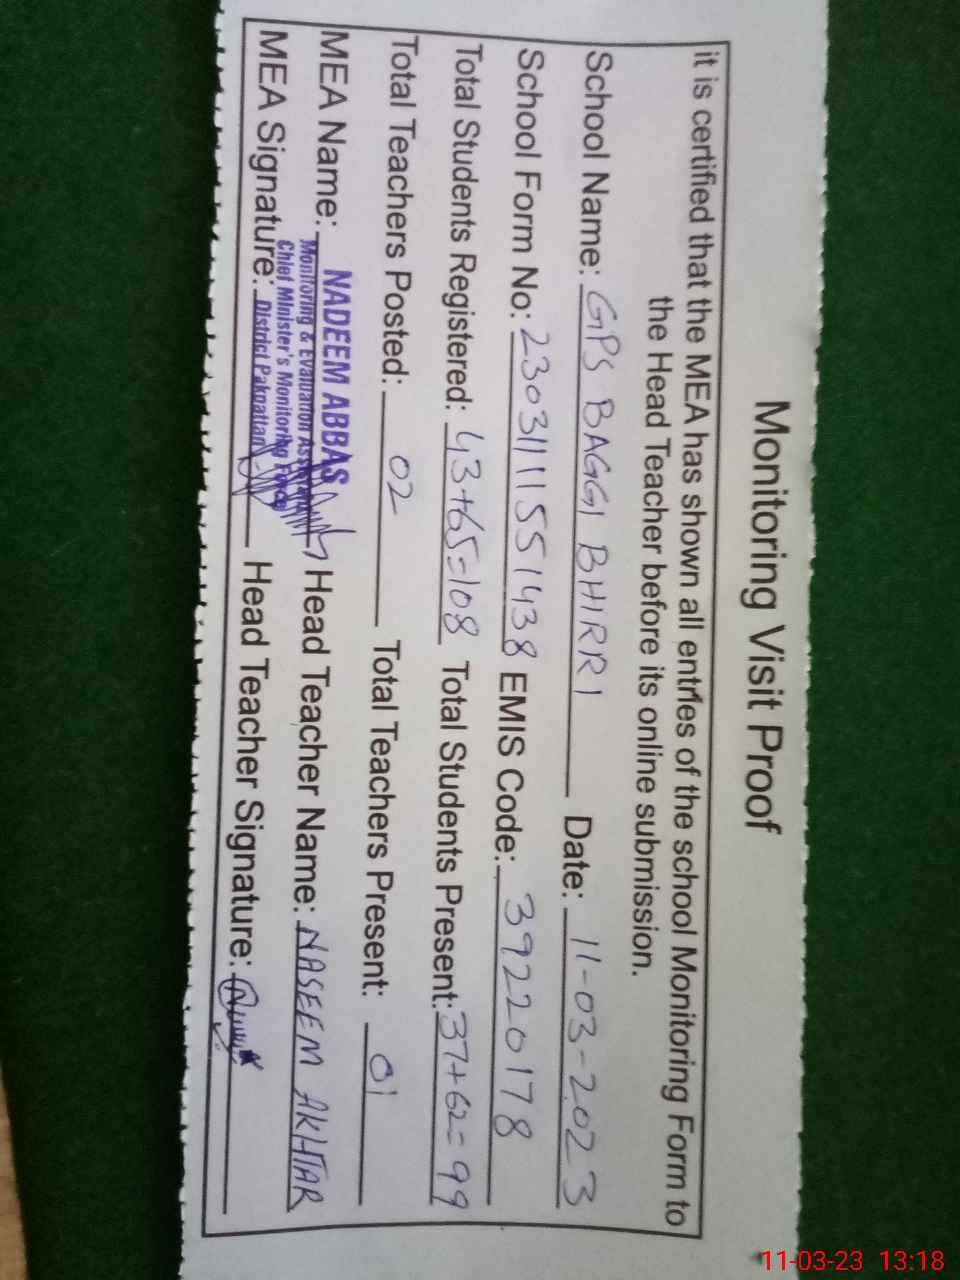 Monitoring Visit Proof
it is certified that the MEA has shown all entries of the school Monitoring Form to
the Head Teacher before its online submission.
School Name: GPS BAGGI BHIRRI Date: 11-03-2023
School Form No: 2303111551438 EMIS Code: 39220178
Total Students Registered: 43+65=108 Total Students Present: 37+62=99
Total Teachers Posted: 02 Total Teachers Present: 01
MEA Name: NADEEM ABBAS Head Teacher Name: NASEEM AKHTAR
Monitoring & Evaluation Assistant
Chief Minister's Monitoring Force
MEA Signature: District Pakpattan Head Teacher Signature:
11-03-23 13:18